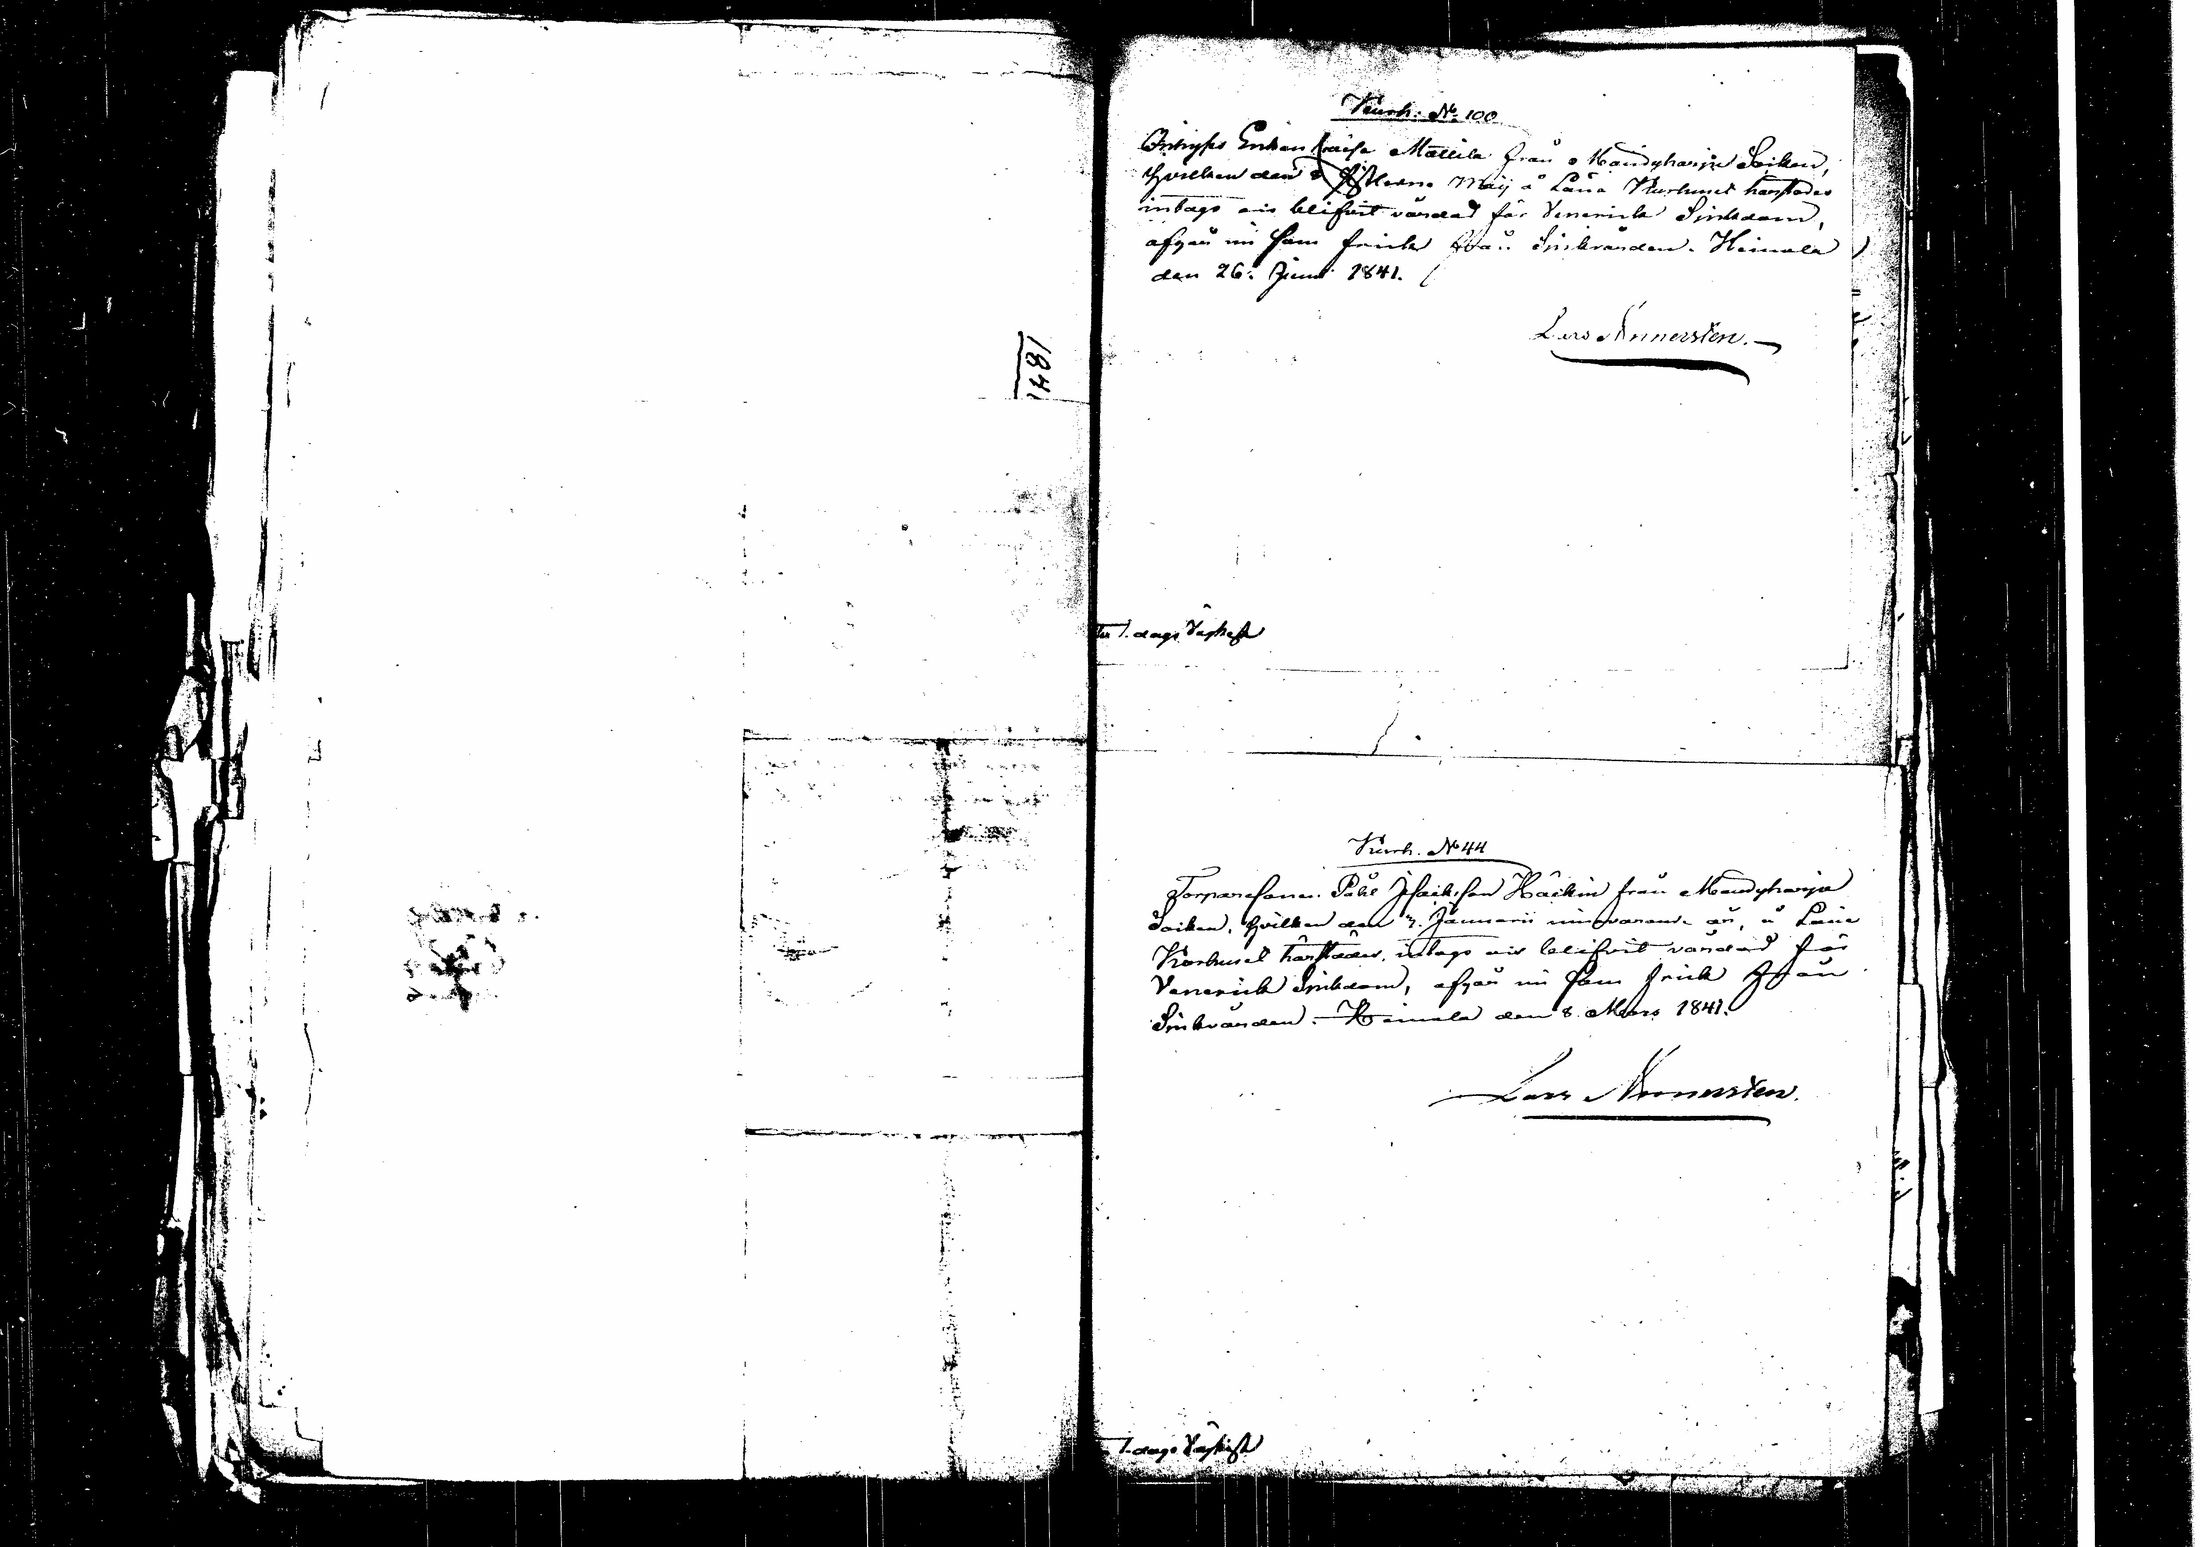 1841
Kurh. No. 100
Enkan Maria Mattila från Mändyharju Socken,
hvilken den sistledne Maij å Läns Kurhuset härstädes
intagits blifvit vårdad för Venerisk Sjukdom,
afgår nu som frisk från Sjukvården. Heinola
den 26. Junii 1841.
Lars Annersten.
1. dags Vägkost
Kurh. No 44
Torparesonen Påhl Isacksson Häckin från Mändyharju
Socken, hvilken den 7. Januarii innevarande år, å Läns
Kurhuset härstädes, intagits blifvit vårdad för
Venerisk Sjukdom, afgår nu som frisk från
Sjukvården. Heinola den 8 Mars 1841.
Lars Annersten.
1. dags Vägkost